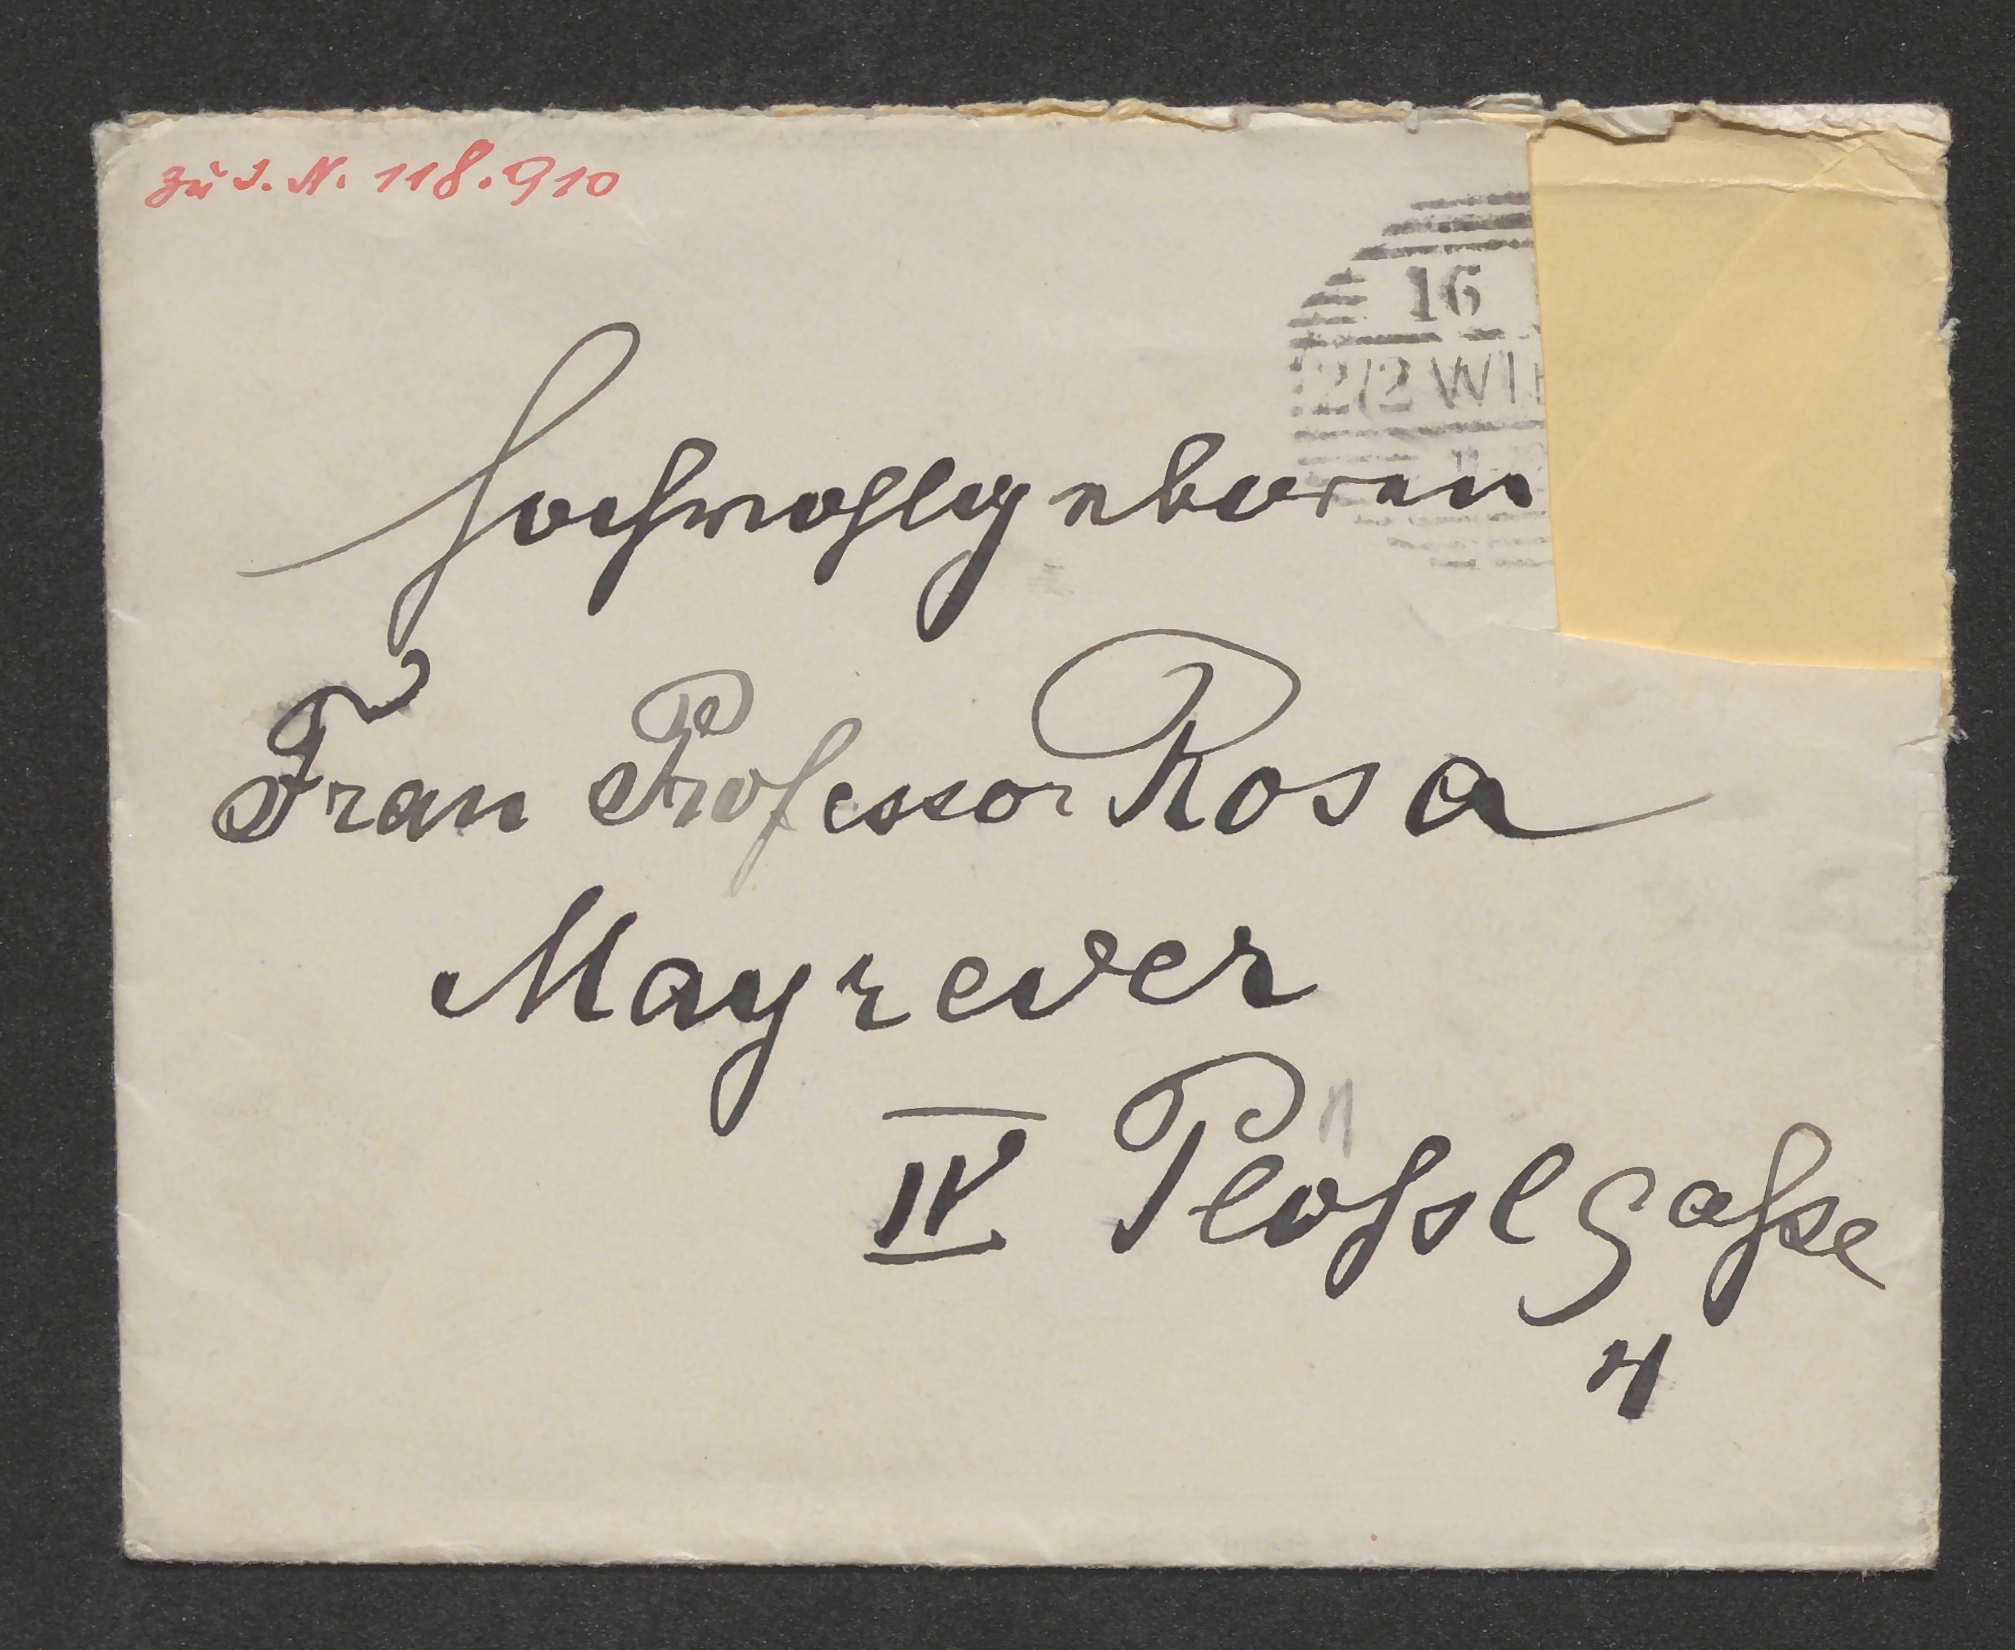 zu I.N. 118.910
16
2/2 WIE
Hochwohlgeboren
Frau Professor Rosa
Mayreder
IV Plößslgaße
4